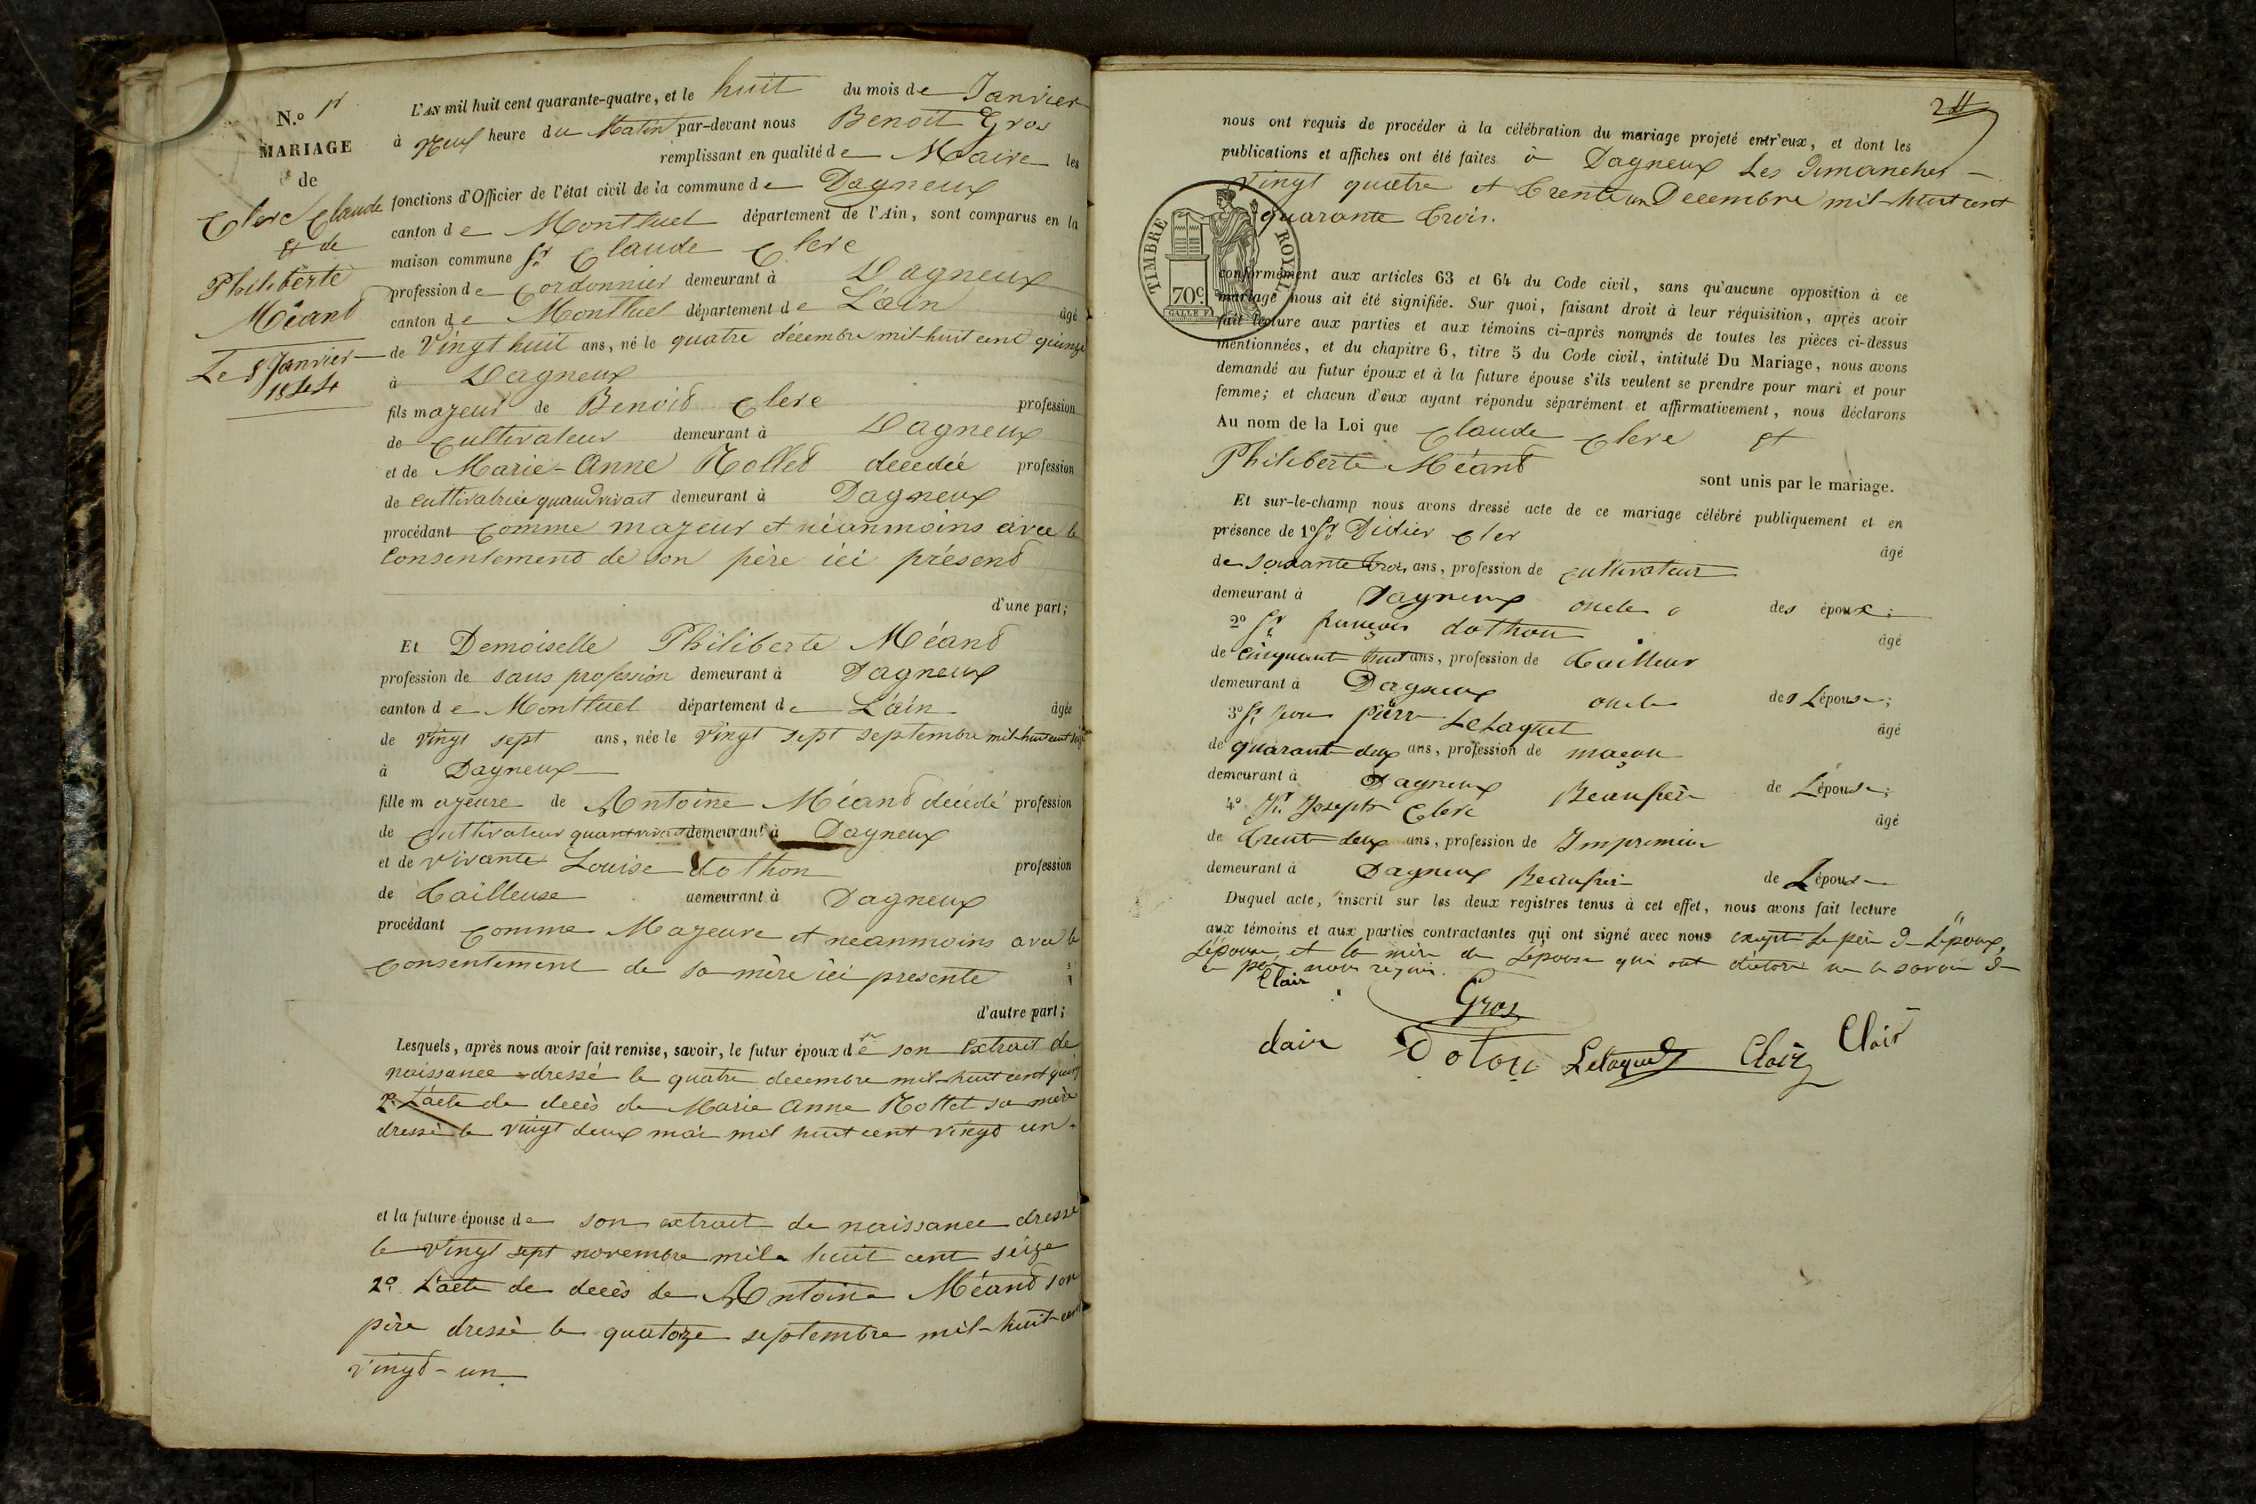 N.º 1er
MARIAGE
de
Clerc Claude
Et de
Philiberte
Méand
Le 8 Janvier
1844
L'AN mil huit cent quarante-quatre, et le huit du mois de Janvier
à neuf heure du Matin par-devant nous Benoit Gros
remplissant en qualité de Maire les
fonctions d'Officier de l'état civil de la commune de Dagneux
canton de Montluel département de l'Ain, sont comparus en la
maison commune Sr Claude Clerc
profession de Cordonnier demeurant à Dagneux
canton de Montluel département de L'ain âgé
de Vingt huit ans, né le quatre décembre mil-huit cent quinze
à Dagneux
fils majeur de Benoid Clerc profession
de Cultivateur demeurant à Dagneux
et de Marie-Anne Nolled décédée profession
de cultivatrice quand vivait demeurant à Dagneux
procédant Comme majeur et néanmoins avec le
Consentement de son père ici présend
d'une part;
Et Demoiselle Philiberte Méand
profession de sans profession demeurant à Dagneux
canton de Montluel département de L'ain âgée
de vingt sept ans, née le vingt sept septembre mil-huit cent seize
à Dagneux
fille majeure de Antoine Méand décédé profession
de Cultivateur quand vivait demeurant à Dagneux
et de vivante Louise dothon profession
de Tailleuse demeurant à Dagneux
procédant Comme Majeure et neanmoins avec le
Consentement de sa mère ici presente
d'autre part;
Lesquels, après nous avoir fait remise, savoir, le futur époux de 1er son Extrait de
naissance dressé le quatre decembre mil-huit cent quinze
2º L'acte de decès de Marie Anne Nottet sa mère
dressé le vingt deux mai mil huit cent vingt un.
et la future épouse de son extrait de naissance dressé
le vingt sept novembre mil huit cent seize
2º L'acte de decès de Antoine Méand son
père dressé le quatorze septembre mil-huit-cent
vingt-un
2
nous ont requis de procéder à la célébration du mariage projeté entr'eux, et dont les
publications et affiches ont été faites à Dagneux Les Dimanches
Vingt quatre et trente un Decembre mil-huit cent
quarante trois.
TIMBRE ROYAL
70c.
conformément aux articles 63 et 64 du Code civil, sans qu'aucune opposition à ce
mariage nous ait été signifiée. Sur quoi, faisant droit à leur réquisition, après avoir
fait lecture aux parties et aux témoins ci-après nommés de toutes les pièces ci-dessus
mentionnées, et du chapitre 6, titre 5 du Code civil, intitulé Du Mariage, nous avons
demandé au futur époux et à la future épouse s'ils veulent se prendre pour mari et pour
femme; et chacun d'eux ayant répondu séparément et affirmativement, nous déclarons
Au nom de la Loi que Claude Clerc Et
Philiberte Méand
sont unis par le mariage.
Et sur-le-champ nous avons dressé acte de ce mariage célébré publiquement et en
présence de 1º Sr Didier Cler
âgé
de soixante trois ans, profession de cultivateur
demeurant à Dagneux oncle des époux;
2º Sr françois dothon
âgé
de cinquante huit ans, profession de Tailleur
demeurant à Dagneux oncle de Lépouse;
3º Sr pierre LeLaquet
âgé
de quarante deux ans, profession de maçon
demeurant à Dagneux Beaufrère de Lépouse;
4º Sr Joseph Clerc
âgé
de trente deux ans, profession de Imprimeur
demeurant à Dagneux Beaufrère de Lépouse
Duquel acte, inscrit sur les deux registres tenus à cet effet, nous avons fait lecture
aux témoins et aux parties contractantes qui ont signé avec nous excepté Le père de Lépoux,
Lépouse, et la mère de Lépouse qui ont déclaré ne le savoir de
ce par nous requis.
Clair
Gros
clair Dotou Lelaquet Clair Clair